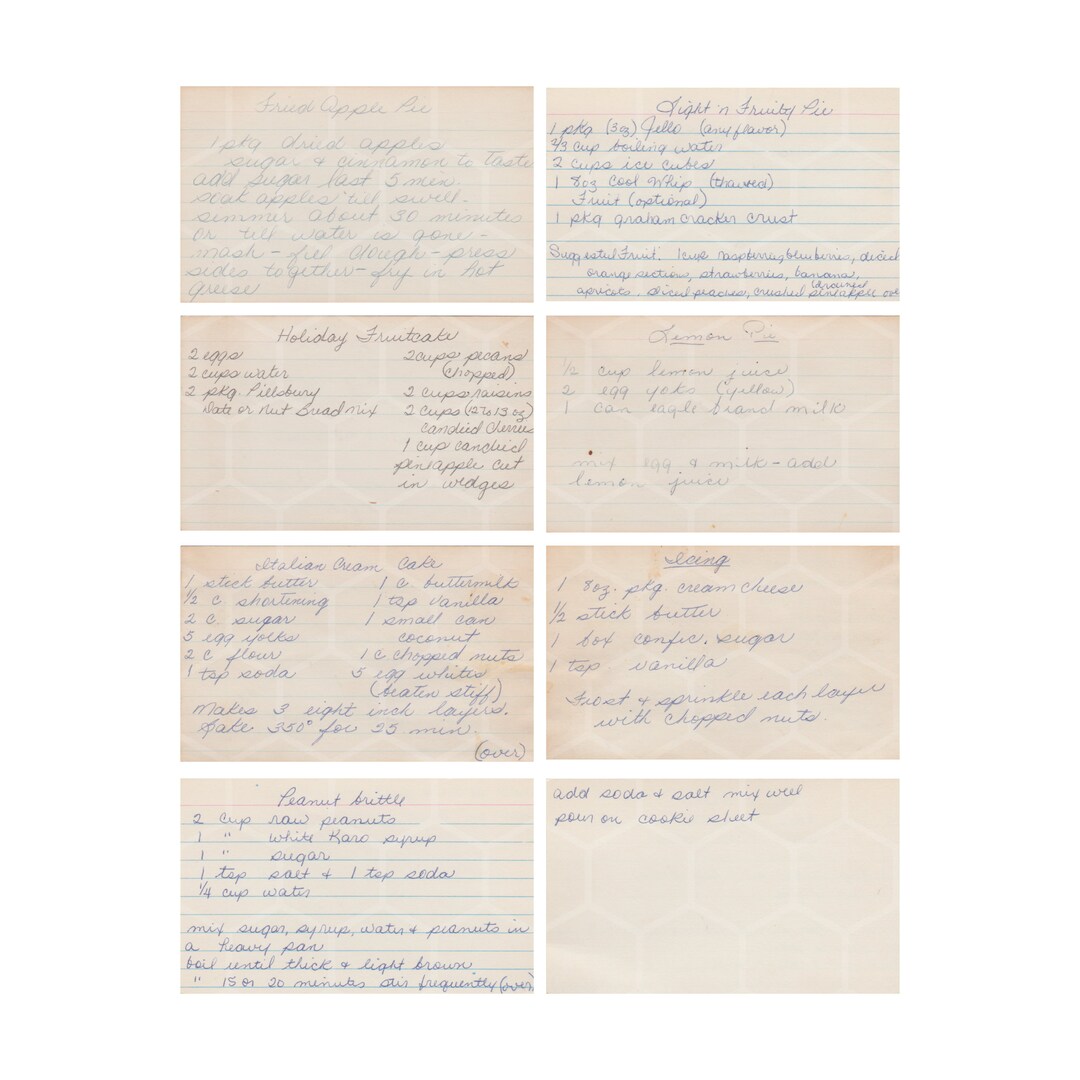 Fried Apple Pie
1 pkg dried apples
sugar & cinnamon to taste
add sugar last 5 min.
soak apples 'till swell.
simmer about 30 minutes
or till water is gone -
mash - fill dough - press
sides together - fry in hot
greese
Light 'n Fruity Pie
1 pkg (3oz) Jello (any flavor)
2/3 cup boiling water
2 cups ice cubes
1 8oz Cool Whip (thawed)
Fruit (optional)
1 pkg graham cracker crust
Suggested Fruit. 1 cup raspberries, blueberries, diced
orange sections, strawberries, banana,
apricots. Diced peaches, crushed (drained) pineapple over
Holiday Fruitcake
2 eggs
2 cups water
2 pkg. Pillsbury
Date or Nut Bread mix
2 cups pecans
(chopped)
2 cups raisins
2 cups (12 to 13 oz)
candied cherries
1 cup candied
pineapple cut
in wedges
Lemon Pie
1/2 cup lemon juice
2 egg yoks (yillow)
1 can eagle brand milk
mix egg & milk - add
lemon juice
Italian Cream Cake
1 stick butter
1/2 c. shortining
2 c. sugar
5 egg yolks
2 c flour
1 tsp soda
1 c. buttermilk
1 tsp vanilla
1 small can
coconut
1 c. chopped nuts
5 egg whites
(beaten stiff)
Makes 3 eight inch layers.
Bake 350° for 25 min.
(over)
Icing
1 8oz. pkg. cream cheese
1/2 stick butter
1 box confec. sugar
1 tsp. vanilla
Frost & sprinkle each layer
with chopped nuts.
Peanut brittle
2 cup raw peanuts
1 " white Karo syrup
1 " sugar
1 tsp salt & 1 tsp soda
1/4 cup water
mix sugar, syrup, water & peanuts in
a heavy pan
boil until thick & light brown
" 15 or 20 minutes stir frequently (over)
add soda & salt mix well
pour on cookie sheet